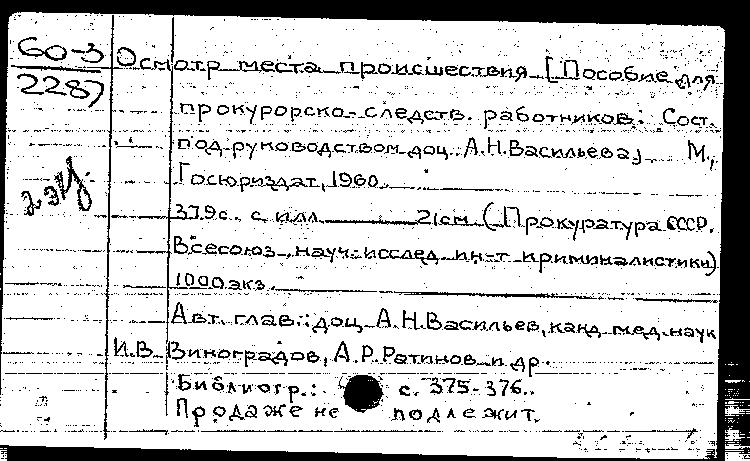 60-3
2287
2 экз.
Осмотр места происшествия [Пособие для
прокурорско-следств. работников. Сост.
под руководством доц. А.Н.Васильева] М.,
Госюриздат, 1960.
379с. с илл. 21см. (Прокуратура СССР.
Всесоюз. науч.-исслед. ин-т криминалистики)
1000 экз.
Авт. глав.: доц. А.Н.Васильев, канд. мед. наук
И.В. Виноградов, А.Р.Ратинов и др.
Библиогр.: с. 375-376.
Продаже не подлежит.